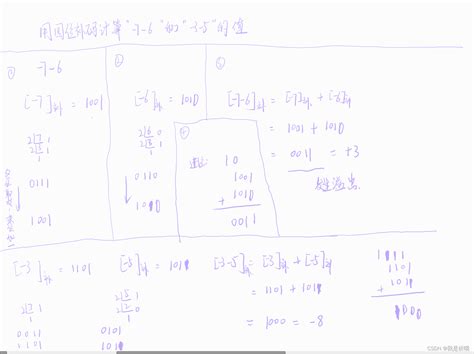 用四位补码计算"-7-6"和"-3-5"的值
① -7-6
[-7]补 = 1001
0111
1001
②
[-6]补 = 1010
0110
1010
③
[-7-6]补 = [-7]补 + [-6]补
= 1001 + 1010
= 0011 = +3
④
10
1001
+ 1010
0011
[-3]补 = 1101
0011
1101
[-5]补 = 1011
0101
1011
[-3-5]补 = [-3]补 + [-5]补
= 1101 + 1011
= 1000 = -8
1111
1101
+ 1011
1000